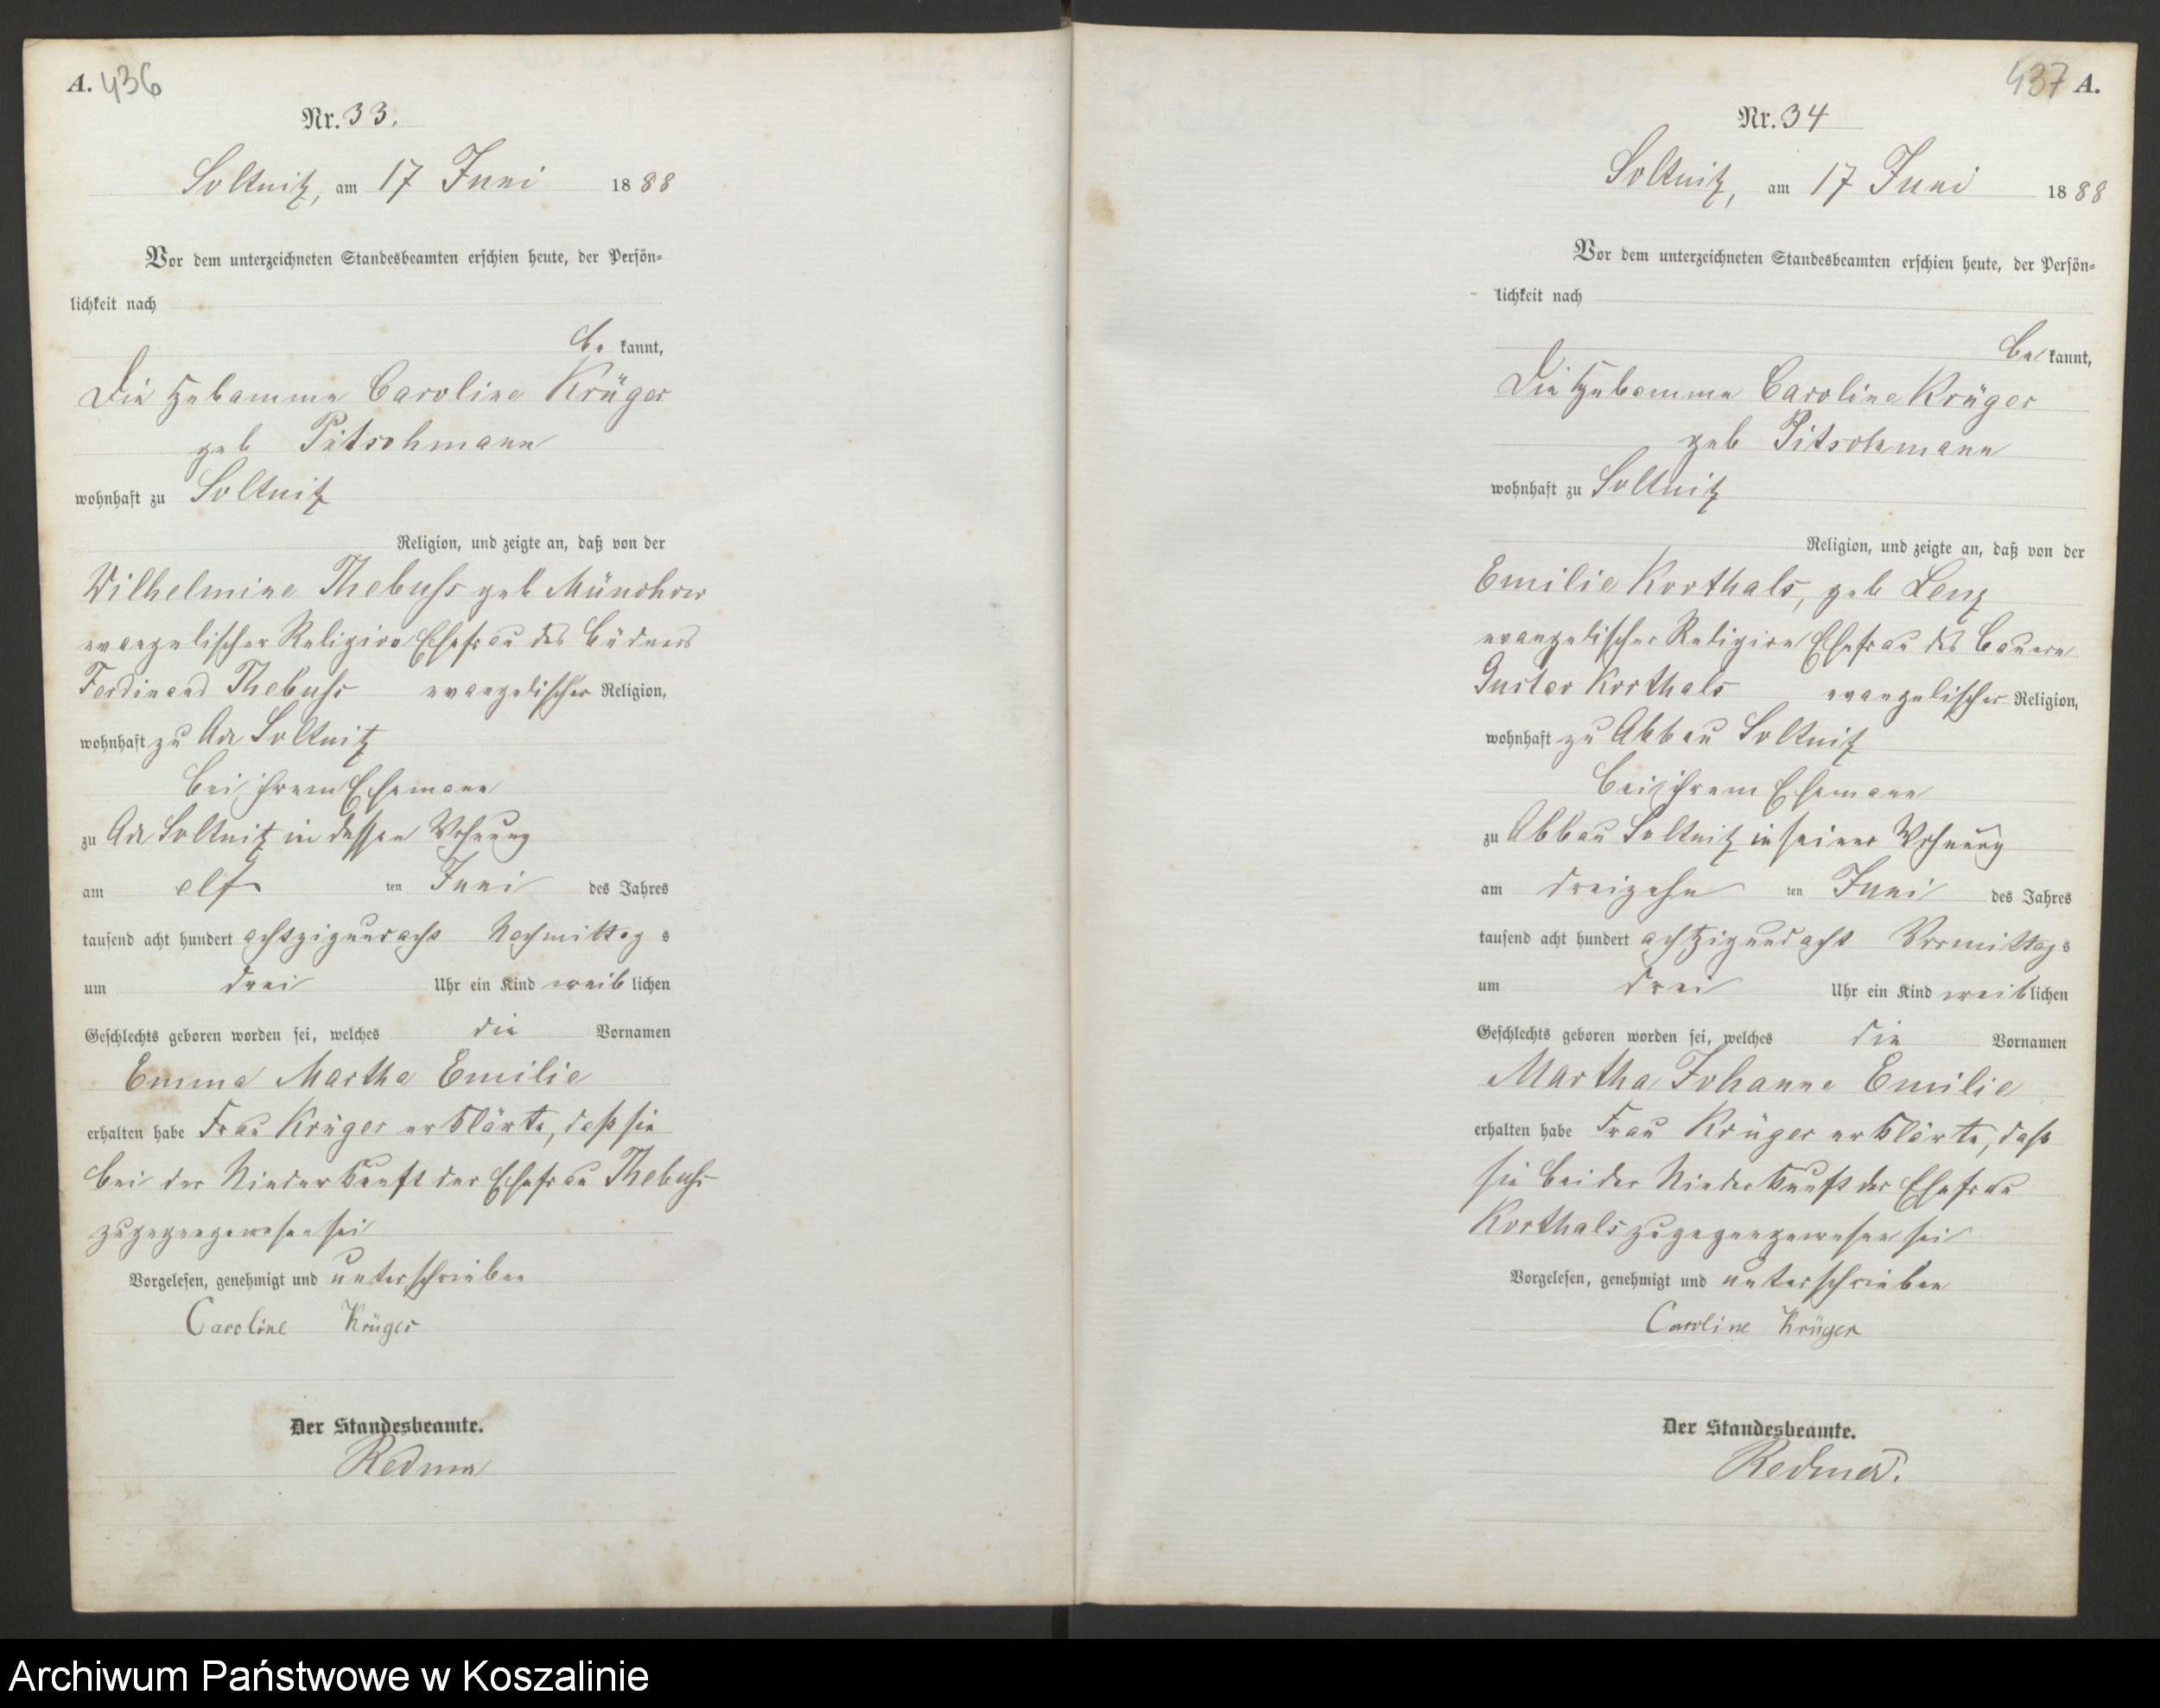 A. 436
Nr. 33.
Soltnitz, am 17 Juni 1888
Vor dem unterzeichneten Standesbeamten erschien heute, der Persön-
lichkeit nach
be kannt,
Die Hebamme Caroline Krüger
geb Pitschmann
wohnhaft zu Soltnitz
Religion, und zeigte an, daß von der
Wilhelmine Thebuhs geb Münchow
evangelischer Religion Ehefrau des Büdners
Ferdinand Thebuhs evangelischer Religion,
wohnhaft zu Soltnitz
bei ihrem Ehemann
zu Soltnitz in dessen Wohnung
am elf ten Juni des Jahres
tausend acht hundert achtzigundacht Nachmittag s
um drei Uhr ein Kind weib lichen
Geschlechts geboren worden sei, welches die Vornamen
Emma Martha Emilie
erhalten habe Frau Krüger erklärte, daß sie
bei der Niederkunft der Ehefrau Thebuhs
zugegengewesen sei
Vorgelesen, genehmigt und unterschrieben
Caroline Krüger
Der Standesbeamte.
437 A.
Nr. 34
Soltnitz, am 17 Juni 1888
Vor dem unterzeichneten Standesbeamten erschien heute, der Persön-
lichkeit nach
be kannt,
Die Hebamme Caroline Krüger
geb Pitschmann
wohnhaft zu Soltnitz
Religion, und zeigte an, daß von der
Emilie Korthals, geb Lenz
evangelischer Religion Ehefrau des Bauern
Gustav Korthals evangelischer Religion,
wohnhaft zu Abbau Soltnitz
bei ihrem Ehemann
zu Abbau Soltnitz in seiner Wohnung
am dreizehn ten Juni des Jahres
tausend acht hundert achtzigundacht Vormittag s
um drei Uhr ein Kind weib lichen
Geschlechts geboren worden sei, welches die Vornamen
Martha Johanne Emilie
erhalten habe Frau Krüger erklärte, daß
sie bei der Niederkunft der Ehefrau
Korthals zugegengewesen sei
Vorgelesen, genehmigt und unterschrieben
Caroline Krüger
Der Standesbeamte.
Archiwum Państwowe w Koszalinie